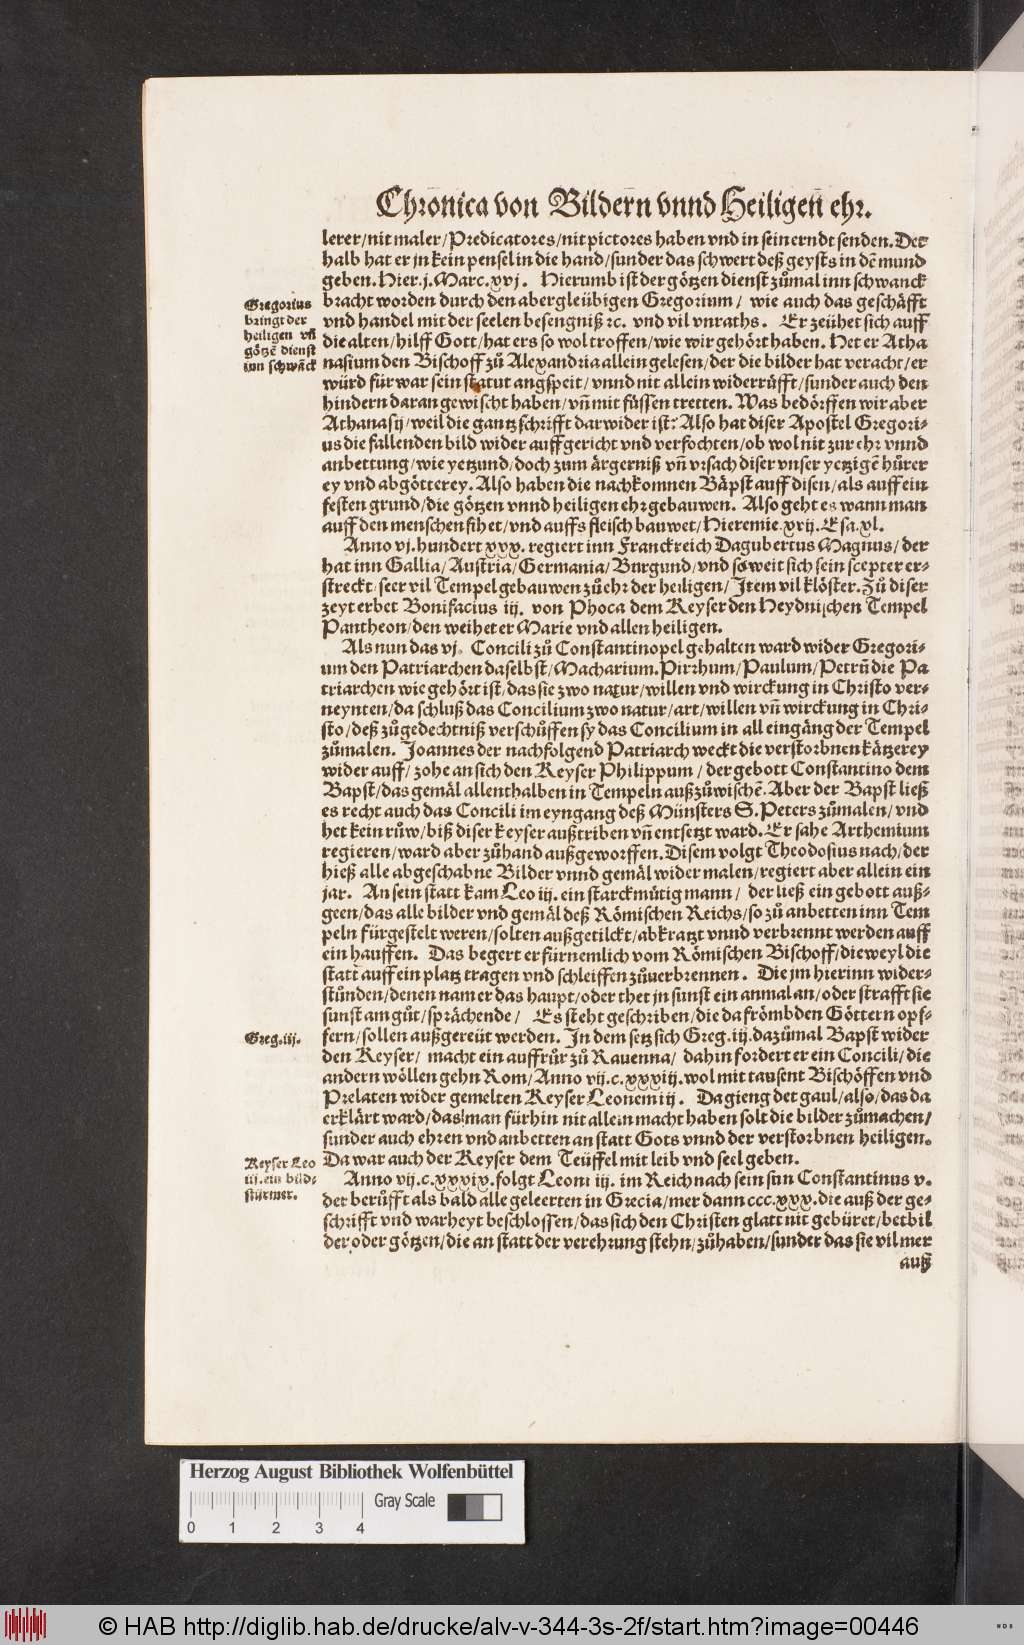 Chronica von Bildern̄ vnnd Heiligen̄ ehr.
lerer/nit maler/Predicatores/nit pictores haben vnd in sein erndt senden. Det
halb hat er jn kein pensel in die hand/sunder das schwert deß geysts in dē mund
geben. Hier.j. Marc.xvj. Hierumb ist der götzen dienst zůmal inn schwanck
bracht worden durch den abergleübigen Gregorium/ wie auch das geschäfft
vnd handel mit der seelen besengniß ꝛc. vnd vil vnraths. Er zeühet sich auff
die alten/hilff Gott/hat ers so wol troffen/wie wir gehört haben. Het er Atha
nasium den Bischoff zů Alexandria allein gelesen/der die bilder hat veracht/er
würd für war sein statut angspeit/vnnd nit allein widerrůfft/sunder auch den
hindern daran gewischt haben/vn̄ mit füssen tretten. Was bedörffen wir aber
Athanasij/weil die gantz schrifft darwider ist? Also hat diser Apostel Gregori⸗
us die fallenden bild wider auffgericht vnd verfochten/ob wol nit zur ehr vnnd
anbettung/wie yetzund/doch zum ärgerniß vn̄ vrsach diser vnser yetzigē hůrer
ey vnd abgötterey. Also haben die nachkomnen Bäpst auff disen/als auff ein
festen grund/die götzen vnnd heiligen ehr gebauwen. Also geht es wann man
auff den menschen sihet/vnd auffs fleisch bauwet/Hieremie.xvij. Esa.xl.
Anno vj.hundert xxx. regiert inn Franckreich Dagubertus Magnus/der
hat inn Gallia/Austria/Germania/Burgund/vnd so weit sich sein scepter er⸗
streckt/seer vil Tempel gebauwen zů ehr der heiligen/Item vil klöster. Zů diser
zeyt erbet Bonifacius iij. von Phoca dem Keyser den Heydnischen Tempel
Pantheon/den weihet er Marie vnd allen heiligen.
Als nun das vj. Concili zů Constantinopel gehalten ward wider Gregori⸗
um den Patriarchen daselbst/Macharium.Pirrhum/Paulum/Petrū die Pa
triarchen wie gehört ist/das sie zwo natur/willen vnd wirckung in Christo ver⸗
neynten/da schluß das Concilium zwo natur/art/willen vn̄ wirckung in Chri⸗
sto/deß zů gedechtniß verschůffen sy das Concilium in all eingäng der Tempel
zůmalen. Joannes der nachfolgend Patriarch weckt die verstorbnen kätzerey
wider auff/zohe an sich den Keyser Philippum/der gebott Constantino dem
Bapst/das gemäl allenthalben in Tempeln außzůwischē. Aber der Bapst ließ
es recht auch das Concili im eyngang deß Münsters S. Peters zůmalen/vnd
het kein růw/biß diser keyser außtriben vn̄ entsetzt ward. Er sahe Arthemium
regieren/ward aber zůhand außgeworffen. Disem volgt Theodosius nach/der
hieß alle abgeschabne Bilder vnnd gemäl wider malen/regiert aber allein ein
jar. An sein statt kam Leo iij. ein starckmůtig mann/ der ließ ein gebott auß⸗
geen/das alle bilder vnd gemäl deß Römischen Reichs/so zů anbetten inn Tem
peln fürgestelt weren/solten außgetilckt/abkratzt vnnd verbrennt werden auff
ein hauffen. Das begert er fürnemlich vom Römischen Bischoff/dieweyl die
statt auff ein platz tragen vnd schleiffen zůverbrennen. Die jm hierinn wider⸗
stůnden/denen nam er das haupt/oder thet jn sunst ein anmal an/oder strafft sie
sunst am gůt/sprächende/ Es steht geschriben/die da frömbden Göttern opf⸗
fern/sollen außgereüt werden. In dem setz sich Greg.iij. dazůmal Bapst wider
den Keyser/ macht ein auffrůr zů Rauenna/ dahin fordert er ein Concili/die
andern wöllen gehn Rom/Anno vij.c.xxxiij. wol mit tausent Bischöffen vnd
Prelaten wider gemelten Keyser Leonem iij. Da gieng det gaul/also/das da
erklärt ward/das man fürhin nit allein macht haben solt die bilder zůmachen/
sunder auch ehren vnd anbetten an statt Gots vnnd der verstorbnen heiligen.
Da war auch der Keyser dem Teüffel mit leib vnd seel geben.
Anno vij.c.xxxix. folgt Leoni iij. im Reich nach sein sun Constantinus v.
det berůfft als bald alle geleerten in Grecia/mer dann ccc.xxx. die auß der ge⸗
schrifft vnd warheyt beschlossen/das sich den Christen glatt nit gebüret/betbil
der oder götzen/die an statt der verehrung stehn/zůhaben/sunder das sie vil mer
auß
Gregorius
bringt der
heiligen vn̄
götzē dienst
inn schwāck
Greg.iij.
Keyser Leo
iij. ein bild⸗
stürmer.
Herzog August Bibliothek Wolfenbüttel
Gray Scale
0 1 2 3 4
© HAB http://diglib.hab.de/drucke/alv-v-344-3s-2f/start.htm?image=00446